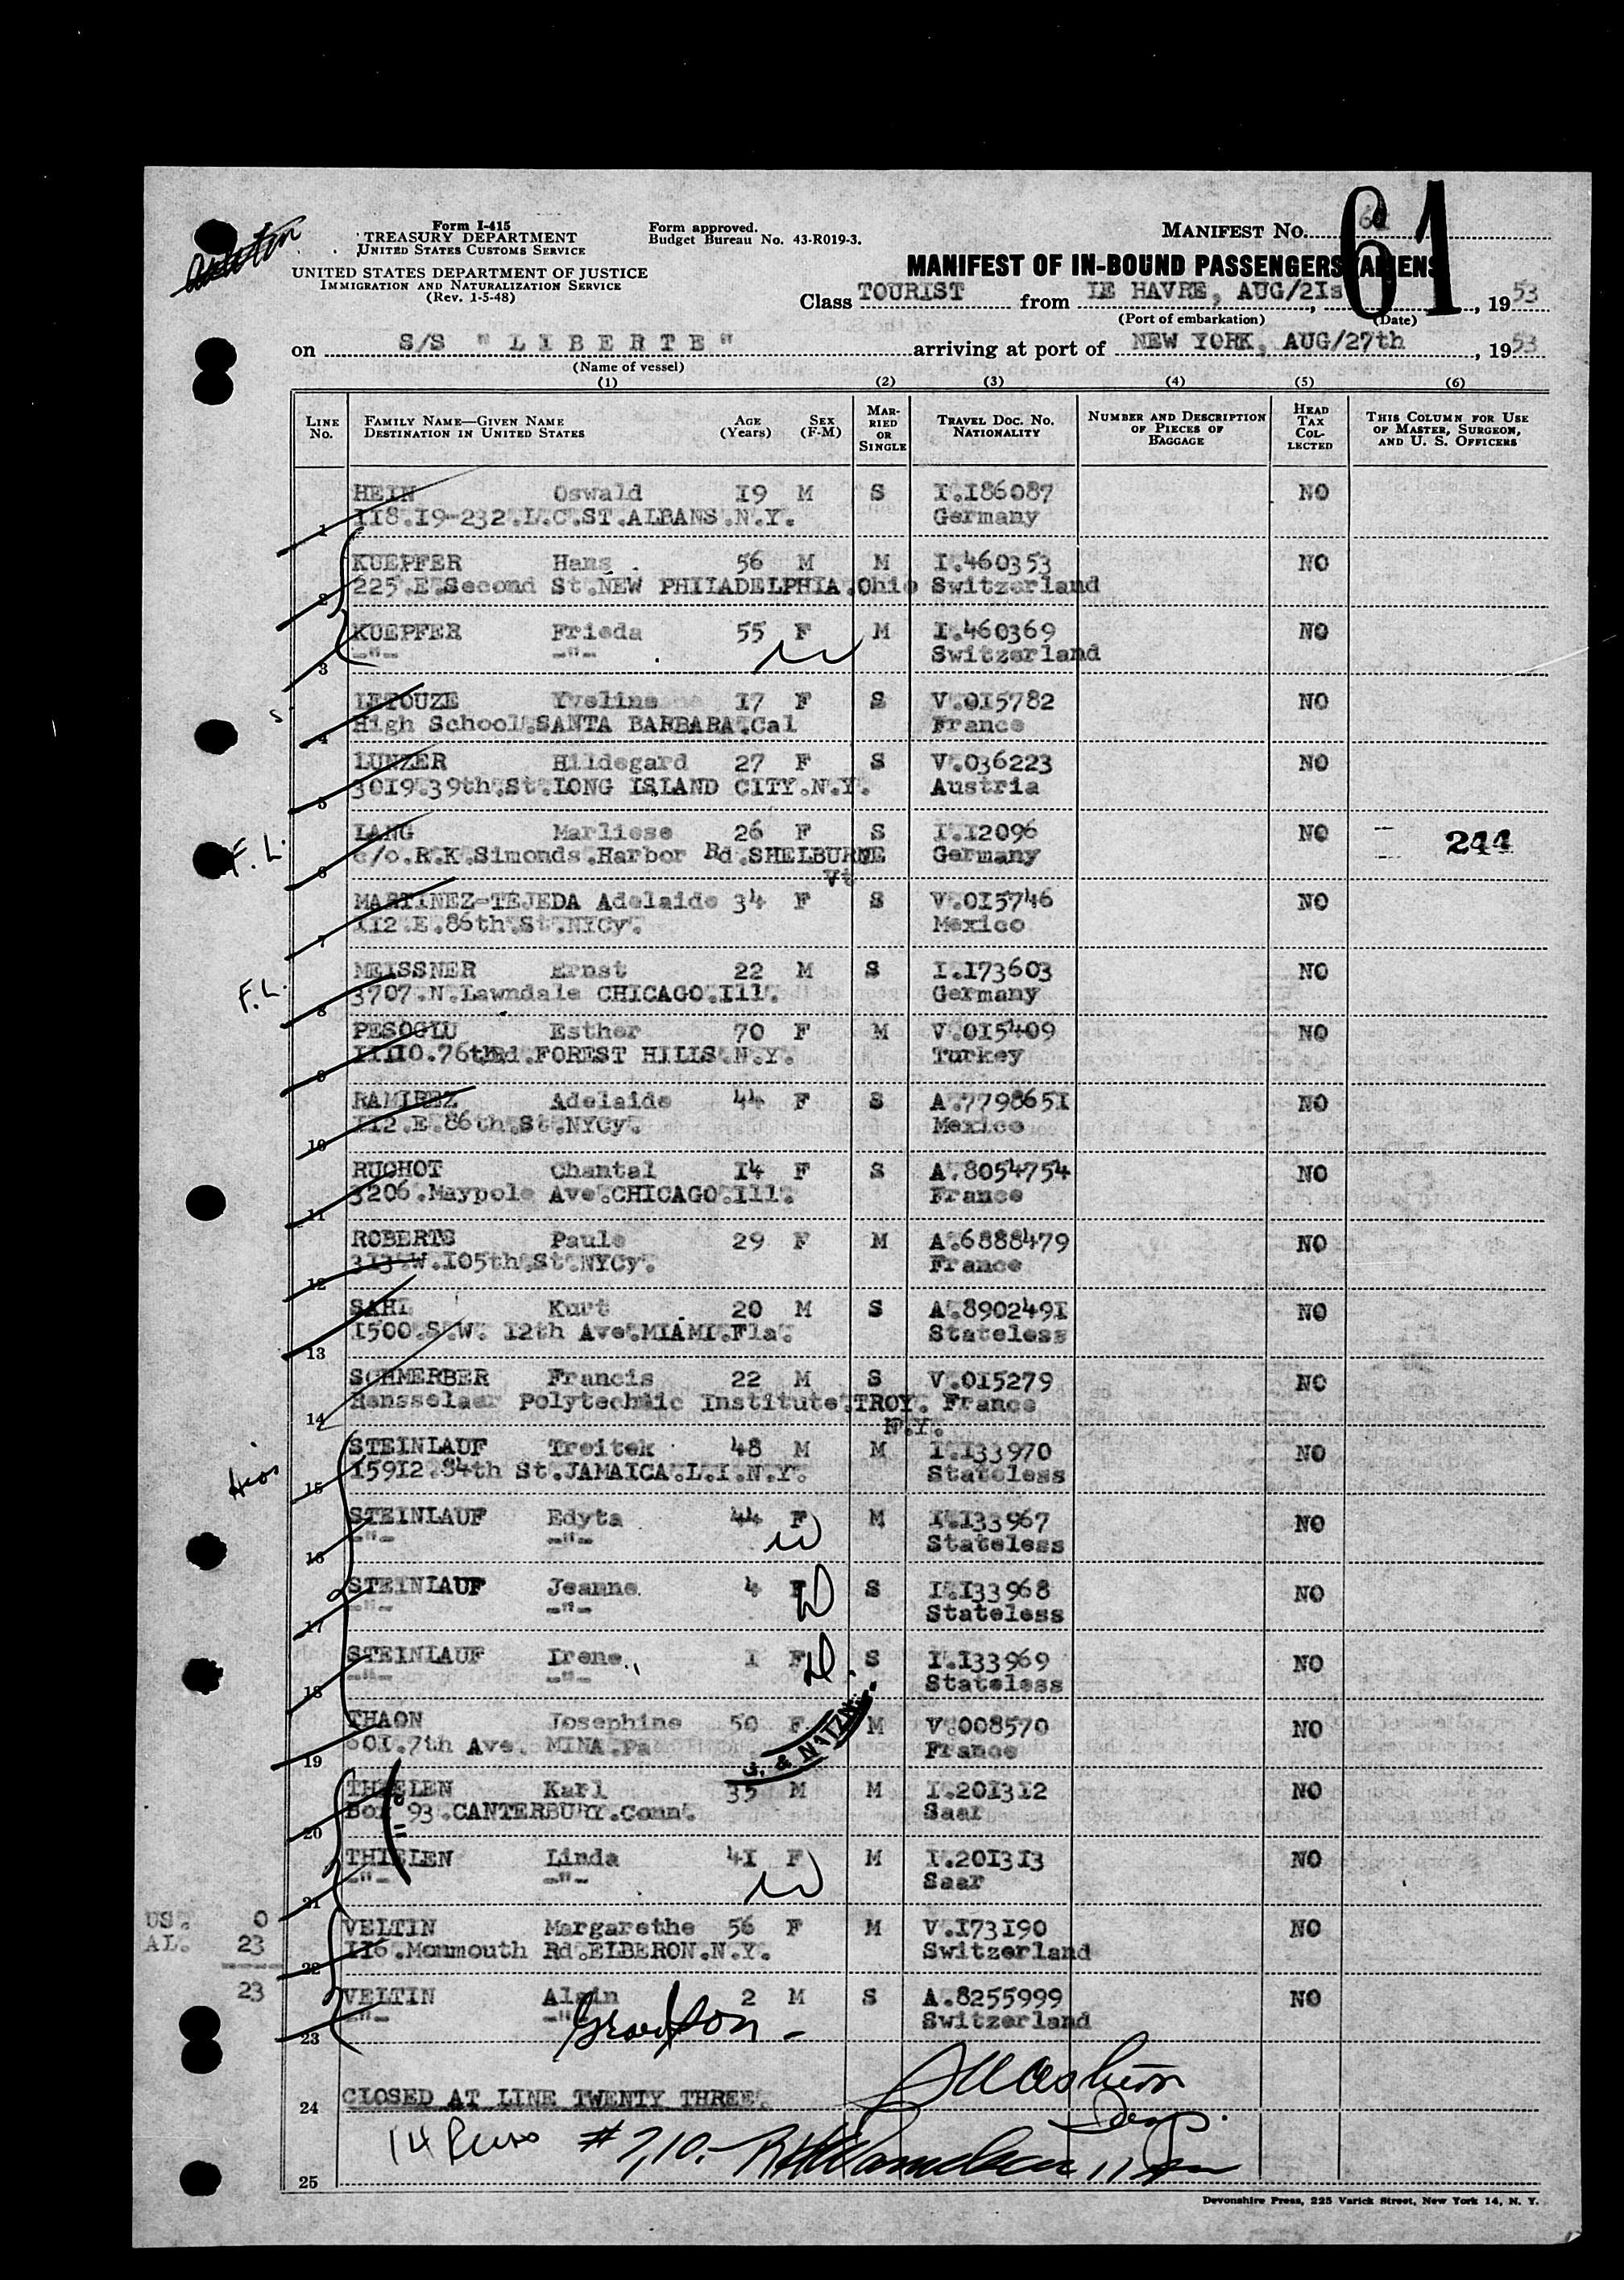 Form I-415
TREASURY DEPARTMENT
UNITED STATES CUSTOMS SERVICE
UNITED STATES DEPARTMENT OF JUSTICE
IMMIGRATION AND NATURALIZATION SERVICE
(Rev. 1-5-48)
Form approved.
Budget Bureau No. 43-R019-3.
MANIFEST No.
61
MANIFEST OF IN-BOUND PASSENGERS (ALIENS
Class TOURIST from LE HAVRE, AUG/2Is , 1953
(Port of embarkation) (Date)
on S/S "LIBERTE" arriving at port of NEW YORK, AUG/27th , 1953
(Name of vessel)
(1) (2) (3) (4) (5) (6)
LINE No. FAMILY NAME—GIVEN NAME DESTINATION IN UNITED STATES AGE (Years) SEX (F-M) MARRIED OR SINGLE TRAVEL DOC. NO. NATIONALITY NUMBER AND DESCRIPTION OF PIECES OF BAGGAGE HEAD TAX COLLECTED THIS COLUMN FOR USE OF MASTER, SURGEON, AND U. S. OFFICERS
HEIN Oswald I9 M S I.I86087 NO
1 II8.I9-232.L.C.ST.ALBANS.N.Y. Germany
KUEPFER Hans 56 M M I.460353 NO
2 225.E.Second St.NEW PHILADELPHIA.Ohio Switzerland
KUEPFER Frieda 55 F M I.460369 NO
3 -"- -"- Switzerland
LETOUZE Yveline I7 F S V.0I5782 NO
4 High School.SANTA BARBARA.Cal France
LUNZER Hildegard 27 F S V.036223 NO
5 30I9.39th.St.LONG ISLAND CITY.N.Y. Austria
F.L. LANG Marliese 26 F S I.I2096 NO 244
6 c/o.R.K.Simonds.Harbor Rd.SHELBURNE Germany
Vt
MARTINEZ-TEJEDA Adelaide 34 F S V.0I5746 NO
7 II2.E.86th.St.NYCy. Mexico
F.L. MEISSNER Ernst 22 M S I.I73603 NO
8 3707.N.Lawndale CHICAGO.Ill. Germany
PESOGLU Esther 70 F M V.0I5409 NO
9 IIII0.76thRd.FOREST HILLS.N.Y. Turkey
RAMIREZ Adelaide 44 F S A.779865I NO
10 II2.E.86th.St.NYCy. Mexico
RUCHOT Chantal I4 F S A.8054754 NO
11 3206.Maypole Ave.CHICAGO.Ill. France
ROBERTS Paule 29 F M A.6888479 NO
12 3I3.W.I05th.St.NYCy. France
SAHL Kurt 20 M S A.890249I NO
13 I500.S.W. I2th Ave.MIAMI.Fla. Stateless
SCHMERBER Francis 22 M S V.0I5279 NO
14 Rensselaer Polytechnic Institute.TROY. France
N.Y.
Hias STEINLAUF Treitek 48 M M I.I33970 NO
15 I59I2.84th St.JAMAICA.L.I.N.Y. Stateless
STEINLAUF Edyta 44 F M I.I33967 NO
16 -"- -"- Stateless
STEINLAUF Jeanne 4 F S I.I33968 NO
17 -"- -"- Stateless
STEINLAUF Irene I F S I.I33969 NO
18 -"- -"- Stateless
THAON Josephine 50 F M V.008570 NO
19 601.7th Ave. MINA.Pa France
& NATZN.
THIELEN Karl 35 M M I.20I3I2 NO
20 Box 93.CANTERBURY.Conn. Saar
THIELEN Linda 4I F M I.20I3I3 NO
21 -"- -"- Saar
US. 0
VELTIN Margarethe 56 F M V.I73I90 NO
AL. 23
22 II6.Monmouth Rd.ELBERON.N.Y. Switzerland
23
VELTIN Alain 2 M S A.8255999 NO
23 -"- -"- Switzerland
Grandson -
24 CLOSED AT LINE TWENTY THREE.
25
Devonshire Press, 225 Varick Street, New York 14, N. Y.